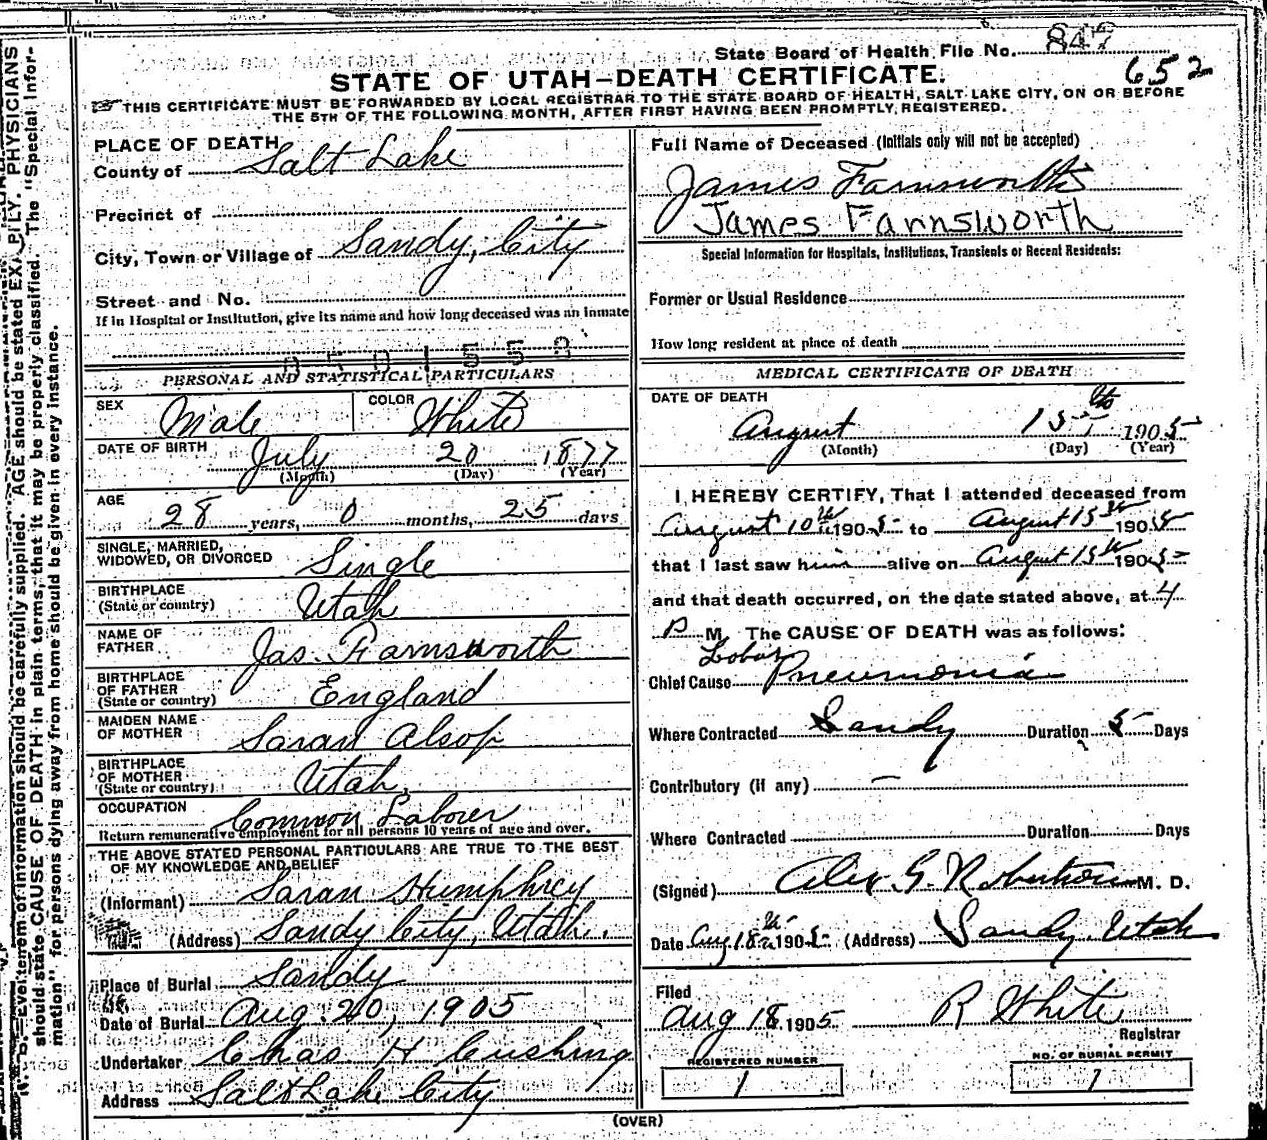 State Board of Health File No. 847
652
STATE OF UTAH—DEATH CERTIFICATE.
THIS CERTIFICATE MUST BE FORWARDED BY LOCAL REGISTRAR TO THE STATE BOARD OF HEALTH, SALT LAKE CITY, ON OR BEFORE
THE 5TH OF THE FOLLOWING MONTH, AFTER FIRST HAVING BEEN PROMPTLY REGISTERED.
PLACE OF DEATH
County of Salt Lake
Precinct of
City, Town or Village of Sandy City
Street and No.
If in Hospital or Institution, give its name and how long deceased was an inmate
PERSONAL AND STATISTICAL PARTICULARS
SEX Male COLOR White
DATE OF BIRTH July 20 1877
(Month) (Day) (Year)
AGE
28 years, 0 months, 25 days
SINGLE, MARRIED,
WIDOWED, OR DIVORCED Single
BIRTHPLACE
(State or country) Utah
NAME OF
FATHER Jas. Farnsworth
BIRTHPLACE
OF FATHER
(State or country) England
MAIDEN NAME
OF MOTHER Sarah Alsop
BIRTHPLACE
OF MOTHER
(State or country) Utah.
OCCUPATION Common Laborer
Return remunerative employment for all persons 10 years of age and over.
THE ABOVE STATED PERSONAL PARTICULARS ARE TRUE TO THE BEST
OF MY KNOWLEDGE AND BELIEF
(Informant) Sarah Humphrey
(Address) Sandy City, Utah.
Place of Burial Sandy
Date of Burial Aug. 20, 1905
Undertaker Chas H Cushing
Address Salt Lake City
Full Name of Deceased (Initials only will not be accepted)
James Farnsworth
James Farnsworth
Special Information for Hospitals, Institutions, Transients or Recent Residents:
Former or Usual Residence
How long resident at place of death
MEDICAL CERTIFICATE OF DEATH
DATE OF DEATH
August 15th 1905
(Month) (Day) (Year)
I HEREBY CERTIFY, That I attended deceased from
August 10th 1905 to August 15th 1905
that I last saw him alive on August 15th 1905
and that death occurred, on the date stated above, at 4
P M. The CAUSE OF DEATH was as follows:
Lobar
Chief Cause Pneumonia
Where Contracted Sandy Duration 5 Days
Contributory (if any) —
Where Contracted Duration Days
(Signed) Alex G. Robertson M. D.
Date Aug 18th 1905 (Address) Sandy, Utah
Filed
Aug 18 1905 R White
Registrar
REGISTERED NUMBER
1
NO. OF BURIAL PERMIT
1
(OVER)
N. B.—Every item of information should be carefully supplied. AGE should be stated EXACTLY. PHYSICIANS
should state CAUSE OF DEATH in plain terms, that it may be properly classified. The "Special Infor-
mation" for persons dying away from home should be given in every instance.